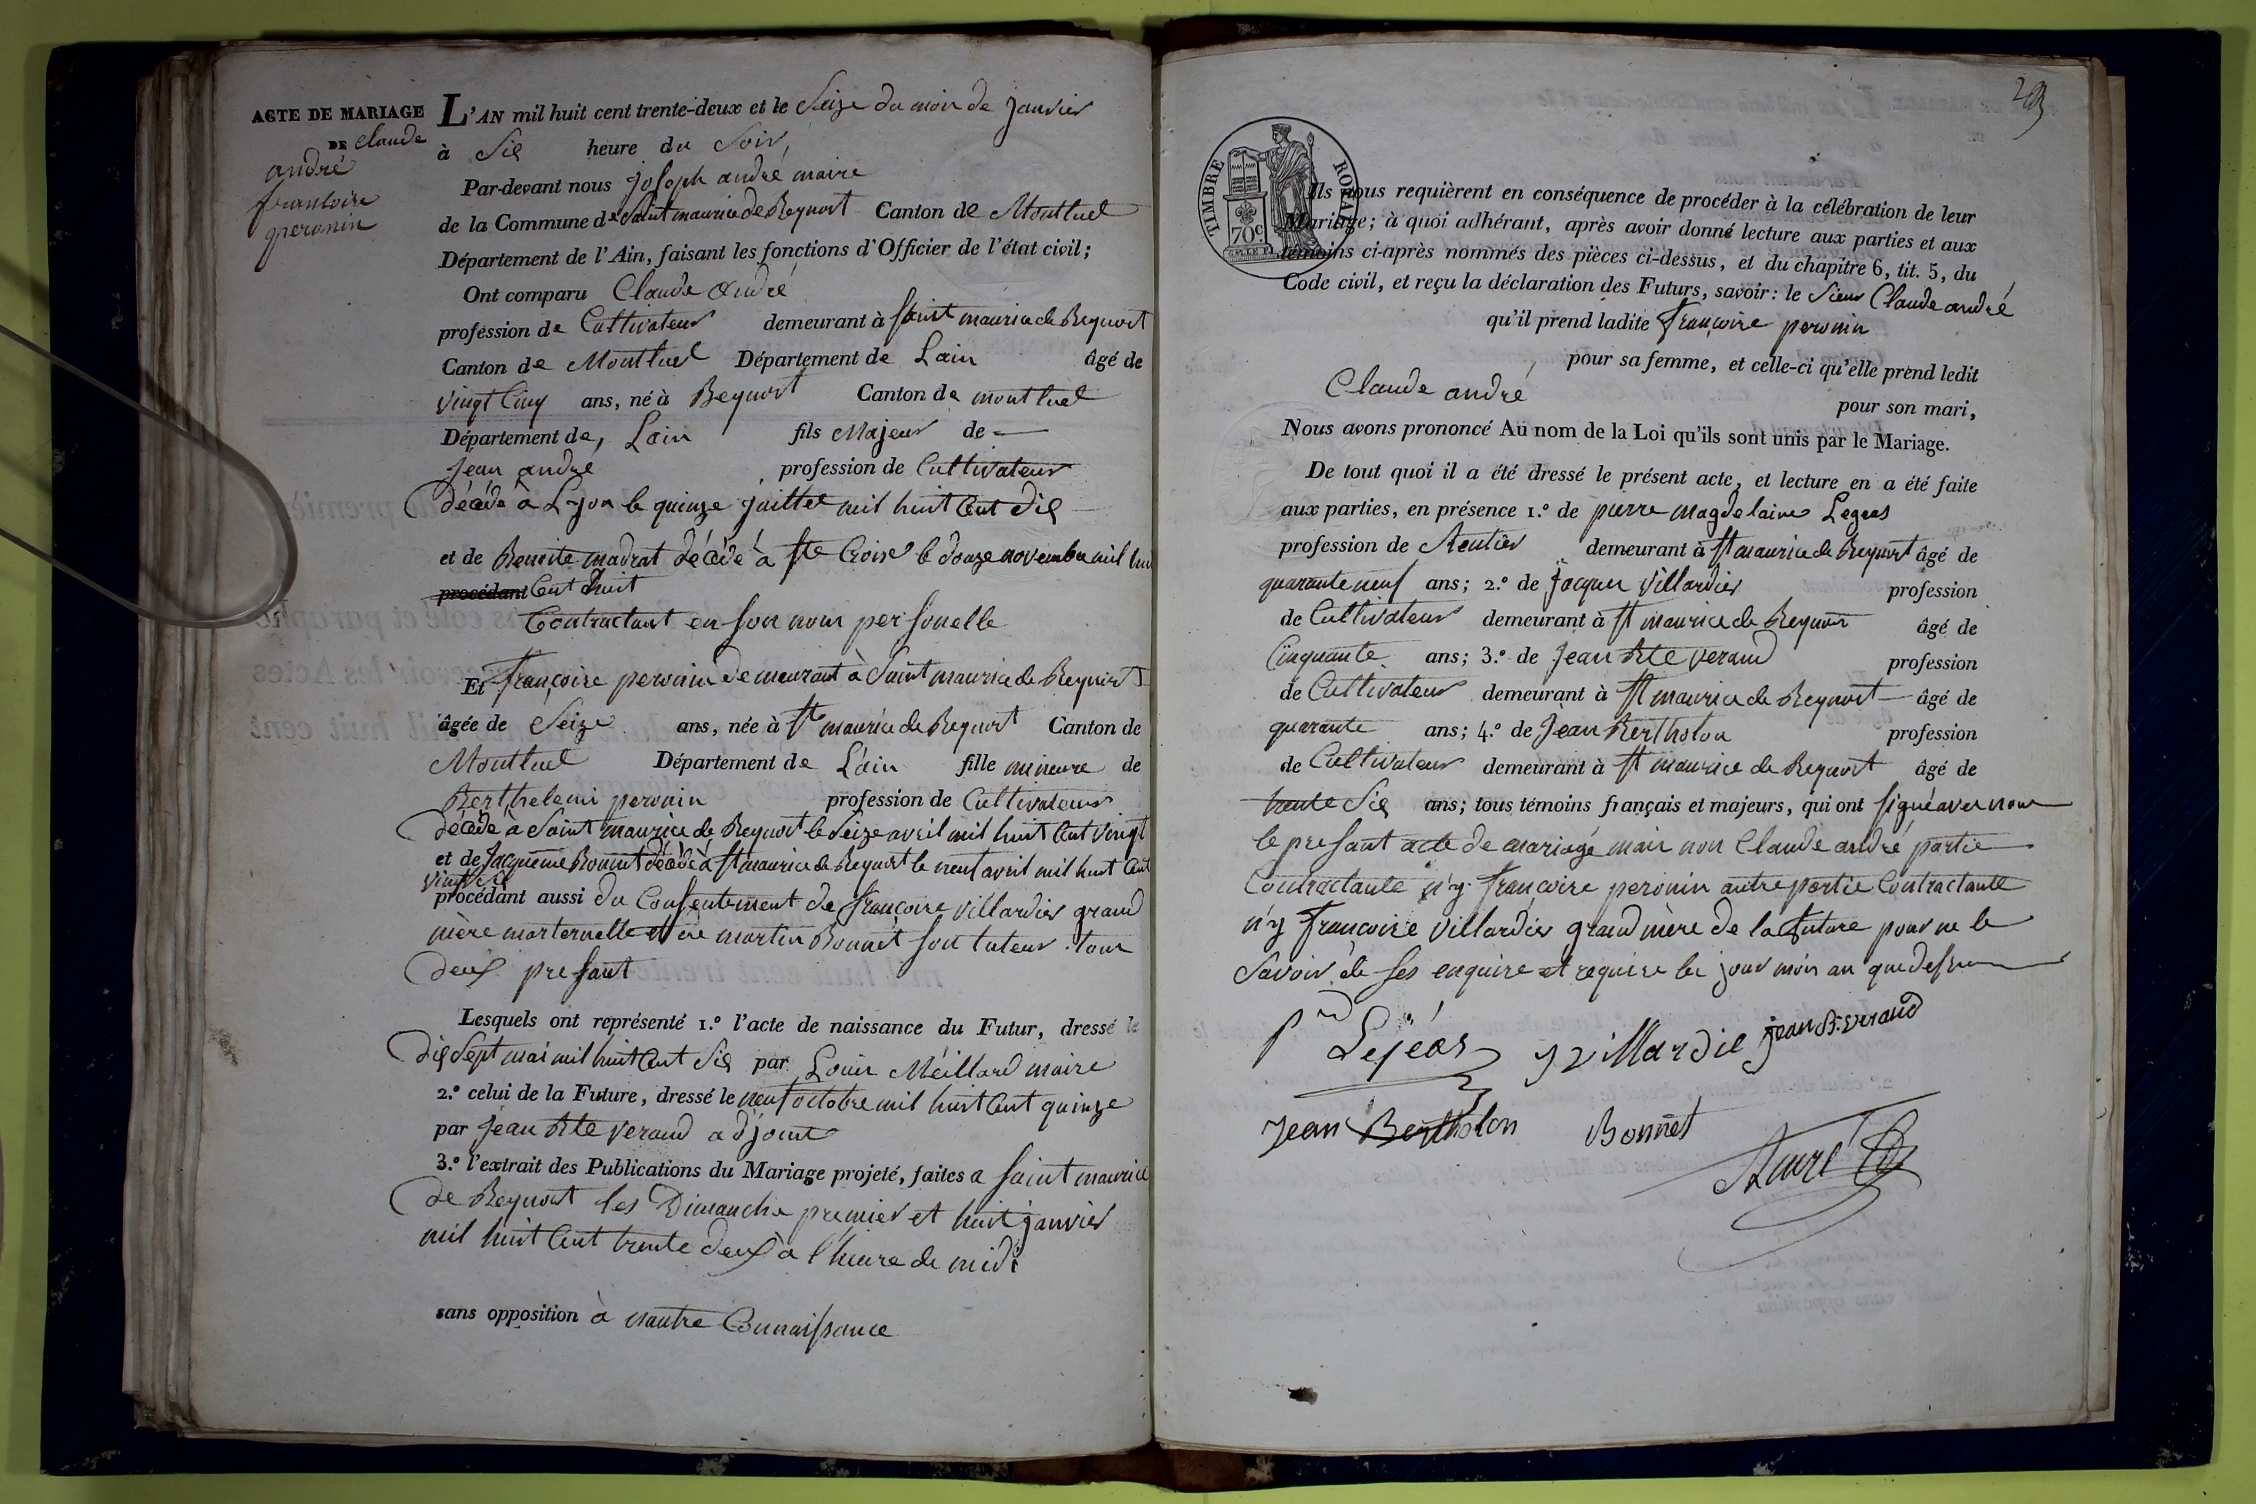 ACTE DE MARIAGE
DE Claude
andré
francoise
peronin
L'AN mil huit cent trente-deux et le Seize du mois de janvier
à Six heure du Soir,
Par-devant nous joseph andré maire
de la Commune de Saint maurice de Beynost Canton de Montluel
Département de l'Ain, faisant les fonctions d'Officier de l'état civil;
Ont comparu Claude André
profession de Cultivateur demeurant à Saint maurice de Beynost
Canton de Montluel Département de Lain âgé de
vingt Cinq ans, né à Beynost Canton de montluel
Département de, Lain fils Majeur de
Jean andré profession de Cultivateur
décédé à Lyon le quinze juillet mil huit Cent dix
et de Benoite madrat décédé à Ste Croix le douze novembre mil hui
procédant Cent huit
Contractant en son nom personelle
Et françoise peronin demeurant à Saint maurice de Beynost
âgée de Seize ans, née à St maurice de Beynost Canton de
Montluel Département de L'ain fille mineure de
Berthelemi peronin profession de Cultivateur
décédé à Saint maurice de Beynost le Seize avril mil huit Cent vingt
et de Jacqueme Bonnet décédé à St maurice de Beynost le neuf avril mil huit Cent
vingt Six
procédant aussi du Consentement de françoise villardier grand
mère marternelle et de martin Bonnet son tuteur tous
deux presant
Lesquels ont représenté 1.º l'acte de naissance du Futur, dressé le
dix Sept mai mil huit Cent Six par Louis Méillard maire
2.º celui de la Future, dressé le neuf octobre mil huit Cent quinze
par Jean Bte veraud adjoint
3.º l'extrait des Publications du Mariage projeté, faites a Saint maurice
de Beynost les Dimanche premier et huit janvier
mil huit Cent trente deux à l'heure de midi
sans opposition à nautre Connaissance
TIMBRE ROYAL
70c
Ils nous requièrent en conséquence de procéder à la célébration de leur
Mariage; à quoi adhérant, après avoir donné lecture aux parties et aux
témoins ci-après nommés des pièces ci-dessus, et du chapitre 6, tit. 5, du
Code civil, et reçu la déclaration des Futurs, savoir: le Sieur Claude andré
qu'il prend ladite françoise peronin
pour sa femme, et celle-ci qu'elle prend ledit
Claude andré
pour son mari,
Nous avons prononcé Au nom de la Loi qu'ils sont unis par le Mariage.
De tout quoi il a été dressé le présent acte, et lecture en a été faite
aux parties, en présence 1.º de pierre magdelaine Lejeas
profession de Rentier demeurant à St maurice de Beynost âgé de
quarante neuf ans; 2.º de Jacques villardier profession
de Cultivateur demeurant à St maurice de Beynost âgé de
Cinquante ans; 3.º de Jean Bte veraud profession
de Cultivateur demeurant à St maurice de Beynost âgé de
quarante ans; 4.º de Jean Bertholon profession
de Cultivateur demeurant à St maurice de Beynost âgé de
trente Six ans; tous témoins français et majeurs, qui ont signé avec nous
le presant acte de mariage mais non Claude andré partie
Contractante n'y françoise peronin autre partie Contractante
n'y francoise villardier grand mère de la future pour ne le
Savoir de ses enquise et requise les jour mois an que dessus
Lejéas J villardie jean Bt veraud
Jean Bertholon Bonnet
André